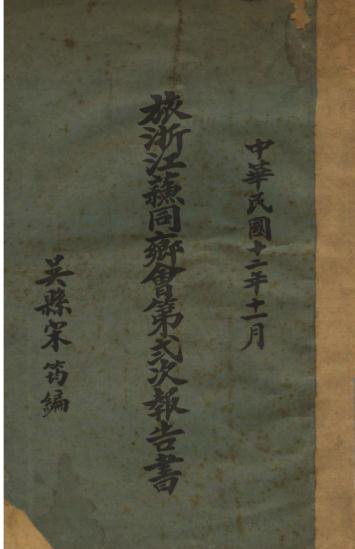 中華民國十二年十一月
旅浙江蘇同鄉會第弍次報告書
吳縣宋筠編